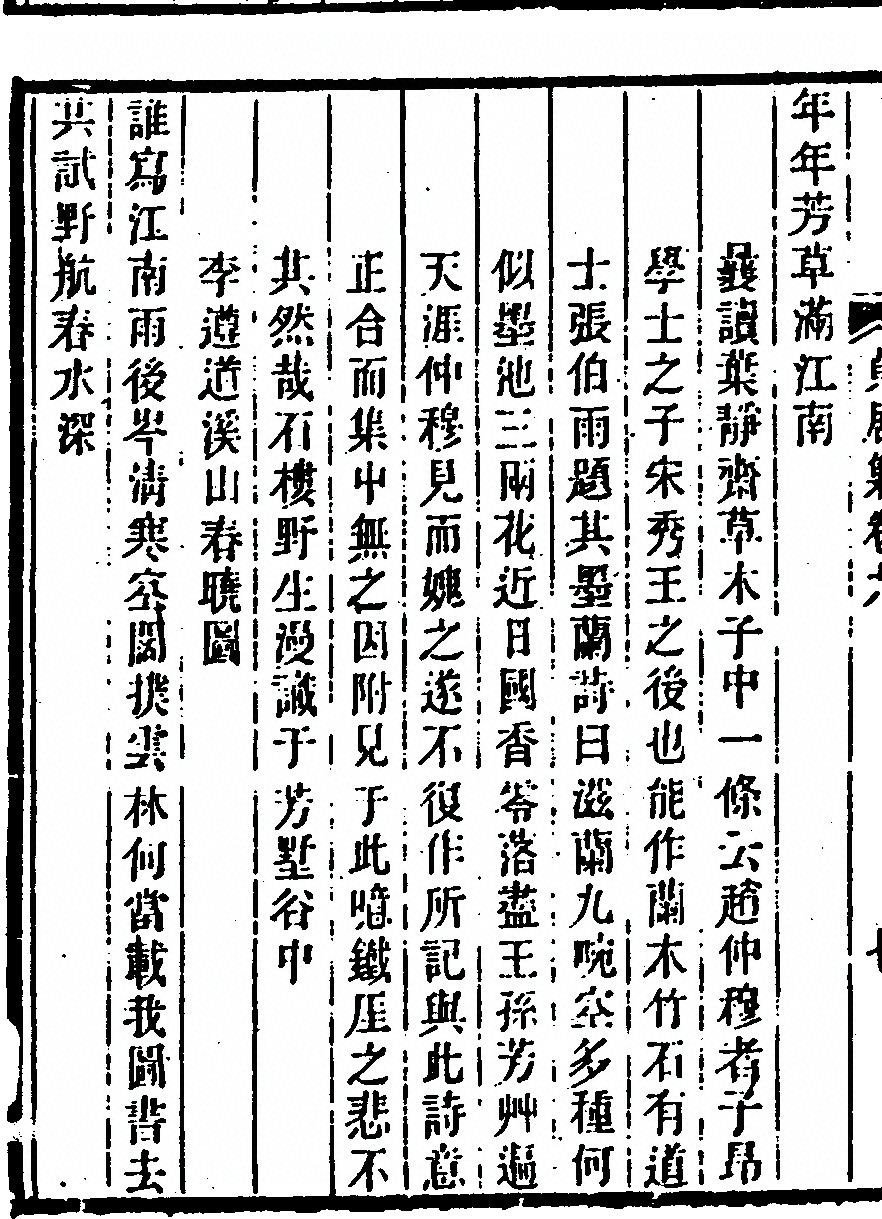 貞居集卷六
七
年年芳草滿江南
曩讀葉靜齋草木子中一條云趙仲穆者子昂
學士之子宋秀王之後也能作蘭木竹石有道
士張伯雨題其墨蘭詩曰滋蘭九畹空多種何
似墨池三兩花近日國香零落盡王孫芳艸遍
天涯仲穆見而媿之遂不復作所記與此詩意
正合而集中無之因附見于此噫鐵厓之悲不
其然哉石樓野生漫識于芳墅谷中
李遵道溪山春曉圖
誰寫江南雨後岑淸寒空閣撲雲林何當載我圖書去
共試野航春水深